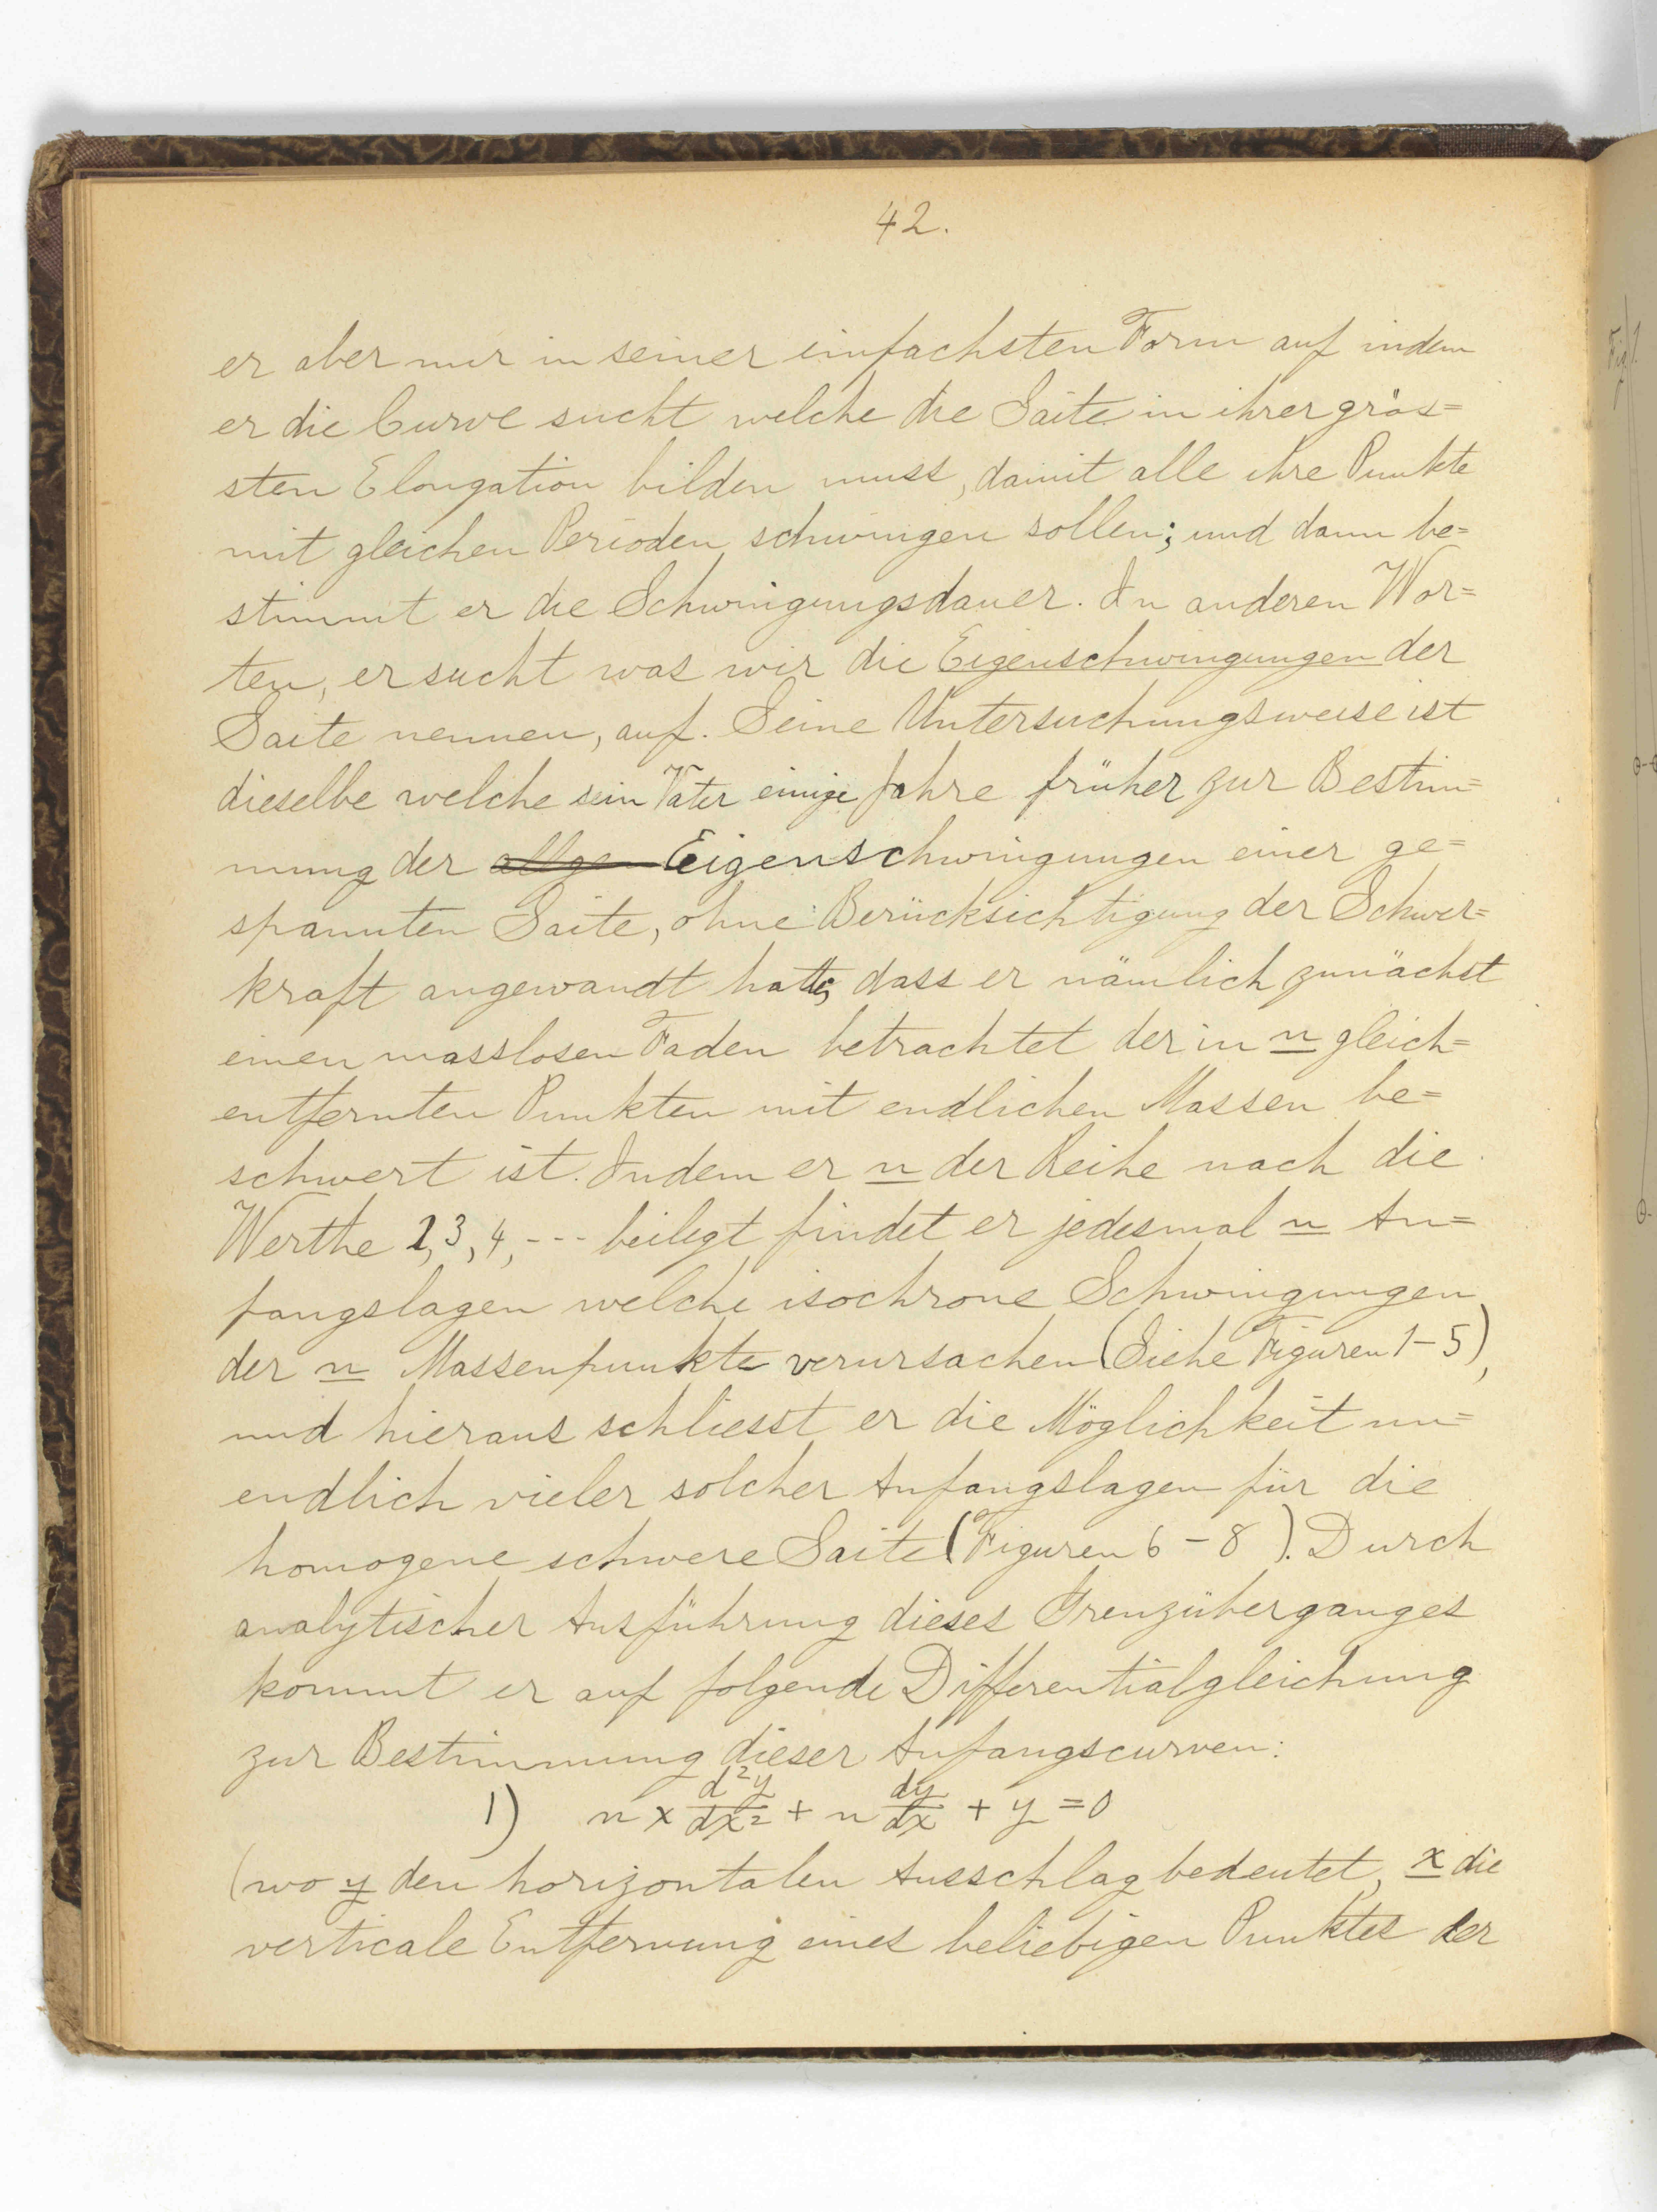 42.
er aber nur in seiner einfachsten Form auf indem
er die Curve sucht welche die Saite in ihrer grös=
sten Elongation bilden muss, damit alle ihre Punkte
mit gleichen Perioden schwingen sollen; und dann be=
stimmt er die Schwingungsdauer. In anderen Wor=
ten, er sucht was wir die Eigenschwingungen der
Saite nennen, auf. Seine Untersuchungsweise ist
dieselbe welche sein Vater einige Jahre früher zur Bestim=
mung der allgem Eigenschwingungen einer ge=
spannten Saite, ohne Berücksichtigung der Schwer=
kraft angewandt hatte, dass er nämlich zunächst
einen masslosen Faden betrachtet der in n gleich=
entfernten Punkten mit endlichen Massen be=
schwert ist. Indem er n der Reihe nach die
Werthe 2, 3, 4, --- beilegt findet er jedesmal n An=
fangslagen welche isochrone Schwingungen
der n Massenpunkte verursachen (Siehe Figuren 1-5),
und hieraus schliesst er die Möglichkeit un=
endlich vieler solcher Anfangslagen für die
homogene schwere Saite (Figuren 6-8). Durch
analytischer Ausführung dieses Grenzüberganges
kommt er auf folgende Differentialgleichung
zur Bestimmung dieser Anfangscurven:
1) n x d²y/dx² + n dy/dx + y = 0
(wo y den horizontalen Ausschlag bedeutet, x die
verticale Entfernung eines beliebigen Punktes der
Fig 1.